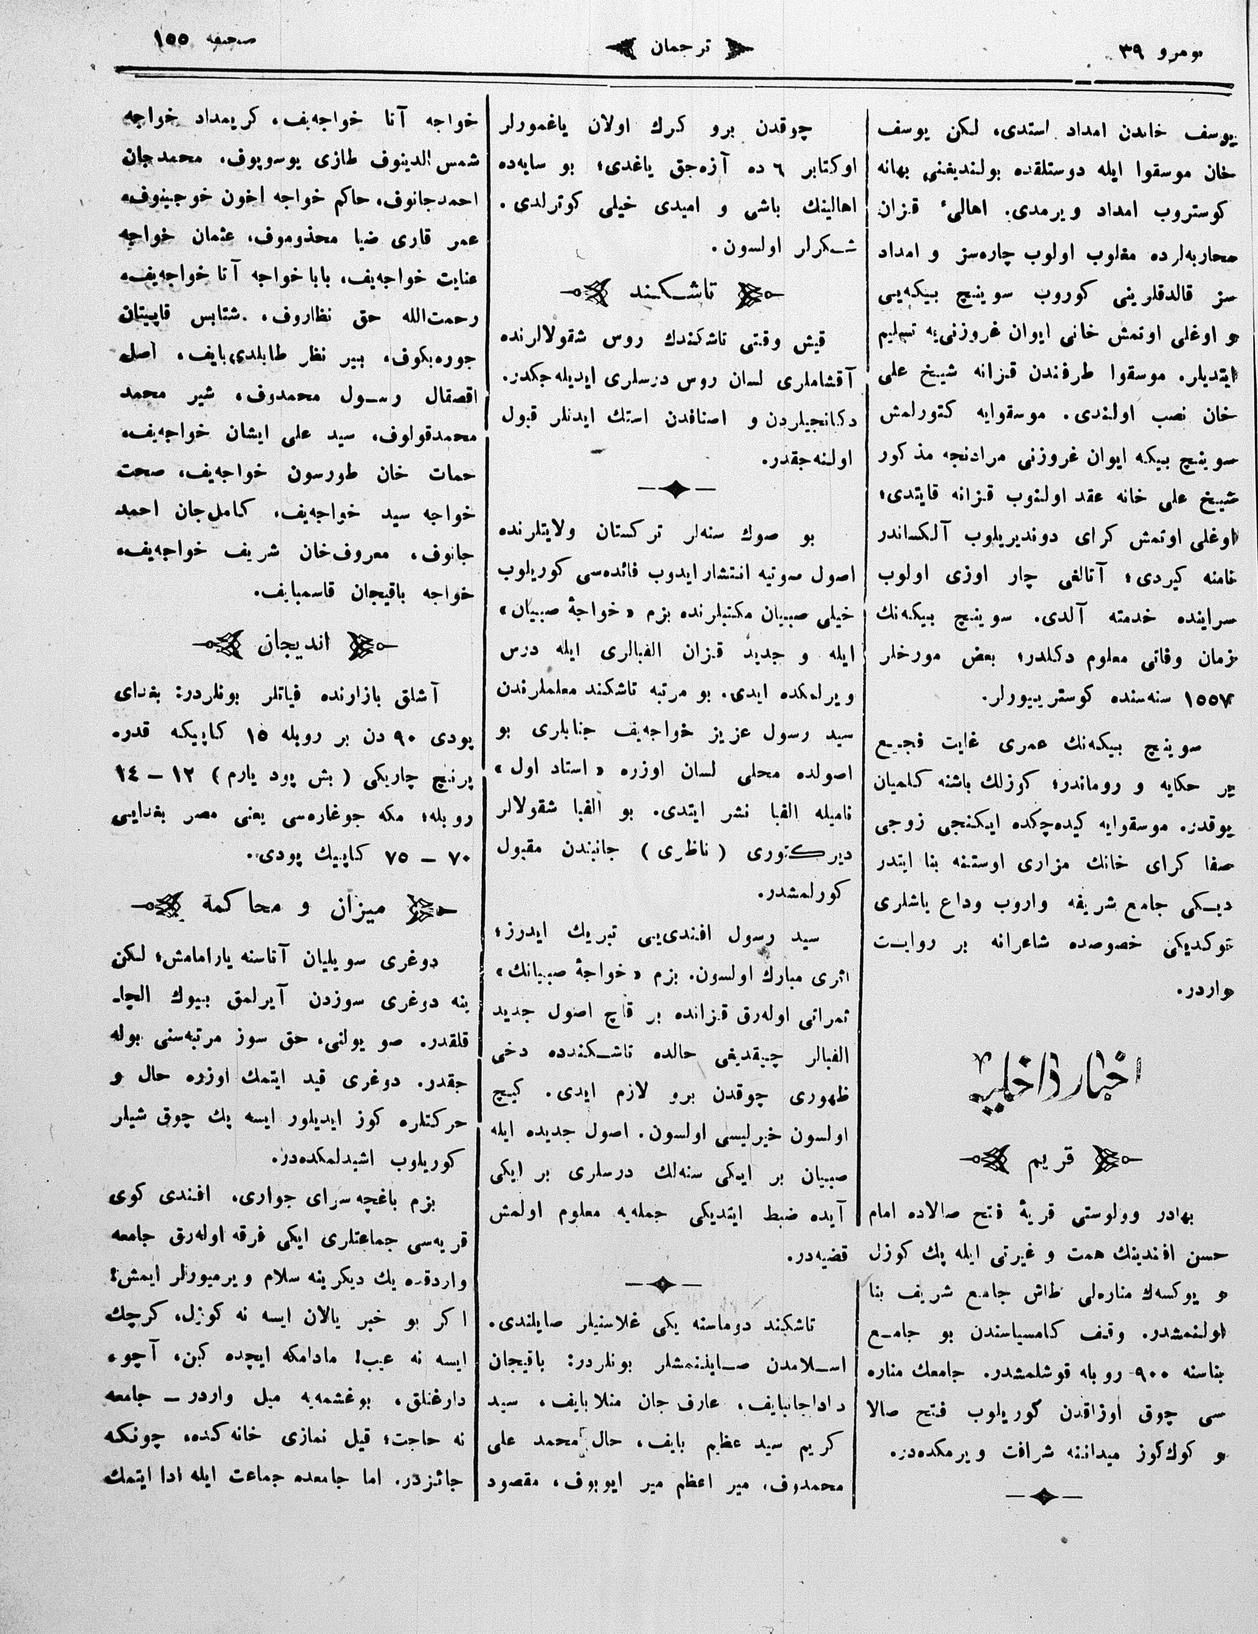 نومرو ٣٩
ترجمان
صحيفه ١٥٥
يوسف خاندن امداد استدى، لكن يوسف
خان موسقوا ايله دوستلقده بولنديغنى بهانه
كوستروب امداد ويرمدى. اهالىء قزان
محاربه‌لرده مغلوب اولوب چاره‌سز و امداد
سز قالدقلرينى كوروب سوينچ بيكه‌يى
و اوغلى اوتمش خانى ايوان غروزنى‌يه تسليم
ايتديلر. موسقوا طرفندن قزانه شيخ على
خان نصب اولندى. موسقوايه كتورلمش
سوينچ بيكه ايوان غروزنى مرادنجه مذكور
شيخ على خانه عقد اولنوب قزانه قايتدى؛
اوغلى اوتمش كراى دونديريلوب آلكساندر
نامنه كيردى؛ آتالغى چار اوزى اولوب
سراينده خدمته آلدى. سوينچ بيكه‌نك
زمان وفاتى معلوم دكلدر؛ بعض مورخلر
١٥٥٧ سنه‌سنده كوسترييورلر.
سوينچ بيكه‌نك عمرى غايت فجيع
بر حكايه و روماندر؛ كوزلك باشنه كلميان
يوقدر. موسقوايه كيده‌چكده ايكنجى زوجى
صفا كراى خانك مزارى اوستنه بنا ايتدر
ديكى جامع شريفه واروب وداع باشلرى
توكديكى خصوصده شاعرانه بر روايت
واردر.
اخبار داخليه
قريم
بهادر وولوستى قريهٔ فتح صالاده امام
حسن افندينك همت و غيرتى ايله پك كوزل
و يوكسه‌ك مناره‌لى طاش جامع شريف بنا
اولنمشدر. وقف كامسياسندن بو جامع
بناسنه ٩٠٠ روبله قوشلمشدر. جامعك مناره
سى چوق اوزاقدن كوريلوب فتح صالا
و كوك‌كوز ميداننه شرافت ويرمكده‌در.
چوقدن برو كرك اولان ياغمورلر
اوكتابر ٦ ده آزه‌جق ياغدى؛ بو سايه‌ده
اهالينك باشى و اميدى خيلى كوترلدى.
شكرلر اولسون.
تاشكند
قيش وقتى تاشكندك روس شقولالرنده
آقشاملرى لسان روس درسلرى ايديله‌جكدر.
دكانجيلردن و اصنافدن استك ايدنلر قبول
اولنه‌جقدر.
بو صوك سنه‌لر تركستان ولايتلرنده
اصول صوتيه انتشار ايدوب فائده‌سى كوريلوب
خيلى صبيان مكتبلرنده بزم «خواجهٔ صبيان»
ايله و جديد قزان الفبالرى ايله درس
ويرلمكده ايدى. بو مرتبه تاشكند معلملرندن
سيد رسول عزيز خواجه‌يف جنابلرى بو
اصولده محلى لسان اوزره «استاد اول»
ناميله الفبا نشر ايتدى. بو الفبا شقولالر
ديركتورى (ناظرى) جانبندن مقبول
كورلمشدر.
سيد رسول افندى‌يى تبريك ايدرز؛
اثرى مبارك اولسون. بزم «خواجهٔ صبيانك»
ثمراتى اوله‌رق قزانده بر قاچ اصول جديد
الفبالر چيقديغى حالده تاشكندده دخى
ظهورى چوقدن برو لازم ايدى. كيچ
اولسون خيرليسى اولسون. اصول جديده ايله
صبيان بر ايكى سنه‌لك درسلرى بر ايكى
آيده ضبط ايتديكى جمله‌يه معلوم اولمش
قضيه‌در.
تاشكند دوماسنه يكى غلاسنيلر صايلندى.
اسلامدن صايلنمشلر بونلردر: باقيجان
داداجانبايف، عارف جان منلا بايف، سيد
كريم سيد عظيم بايف، حال محمد على
محمدوف، مير اعظم مير ايوبوف، مقصود
خواجه آتا خواجه‌يف، كريمداد خواجه
شمس‌الدينوف طازى يوسوپوف، محمدجان
احمدجانوف، حاكم خواجه اخون خوجينوف،
عمر قارى ضيا محذوموف، عثمان خواجه
عنايت خواجه‌يف، بابا خواجه آتا خواجه‌يف،
رحمت‌الله حق نظاروف، شتابس قاپيتان
جوره‌بكوف، بير نظر طابلدى‌بايف، اصل
اقصقال رسول محمدوف، شير محمد
محمدقولوف، سيد على ايشان خواجه‌يف،
حمات خان طورسون خواجه‌يف، صحت
خواجه سيد خواجه‌يف، كامل‌جان احمد
جانوف، معروف‌خان شريف خواجه‌يف،
خواجه باقيجان قاسمبايف.
انديجان
آشلق بازاونده فياتلر بونلردر: بغداى
پودى ٩٠ دن بر روبله ١٥ كاپيكه قدر.
پرنچ چاريكى (بش پود يارم) ١٢ – ١٤
روبله؛ مكه جوغاره‌سى يعنى مصر بغدايى
٧٠ – ٧٥ كاپيك پودى.
ميزان و محاكمة
دوغرى سويليان آناسنه يارامامش؛ لكن
ينه دوغرى سوزدن آيرلمق بيوك الچا‍
قلقدر. صو يولنى، حق سوز مرتبه‌سنى بوله
جقدر. دوغرى قيد ايتمك اوزره حال و
حركتلره كوز ايديلور ايسه پك چوق شيلر
كوريلوب اشيدلمكده‌در.
بزم باغچه‌سراى جوارى، افندى كوى
قريه‌سى جماعتلرى ايكى فرقه اوله‌رق جامعه
واردقده يك ديكرينه سلام ويرميورلر ايمش!
اكر بو خبر يالان ايسه نه كوزل، كرچك
ايسه نه عيب! مادامكه ايچده كين، آچو،
دارغنلق، بوغشمه‌يه ميل واردر – جامعه
نه حاجت؛ قيل نمازى خانه‌كده، چونكه
جائزدر. اما جامعده جماعت ايله ادا ايتمك